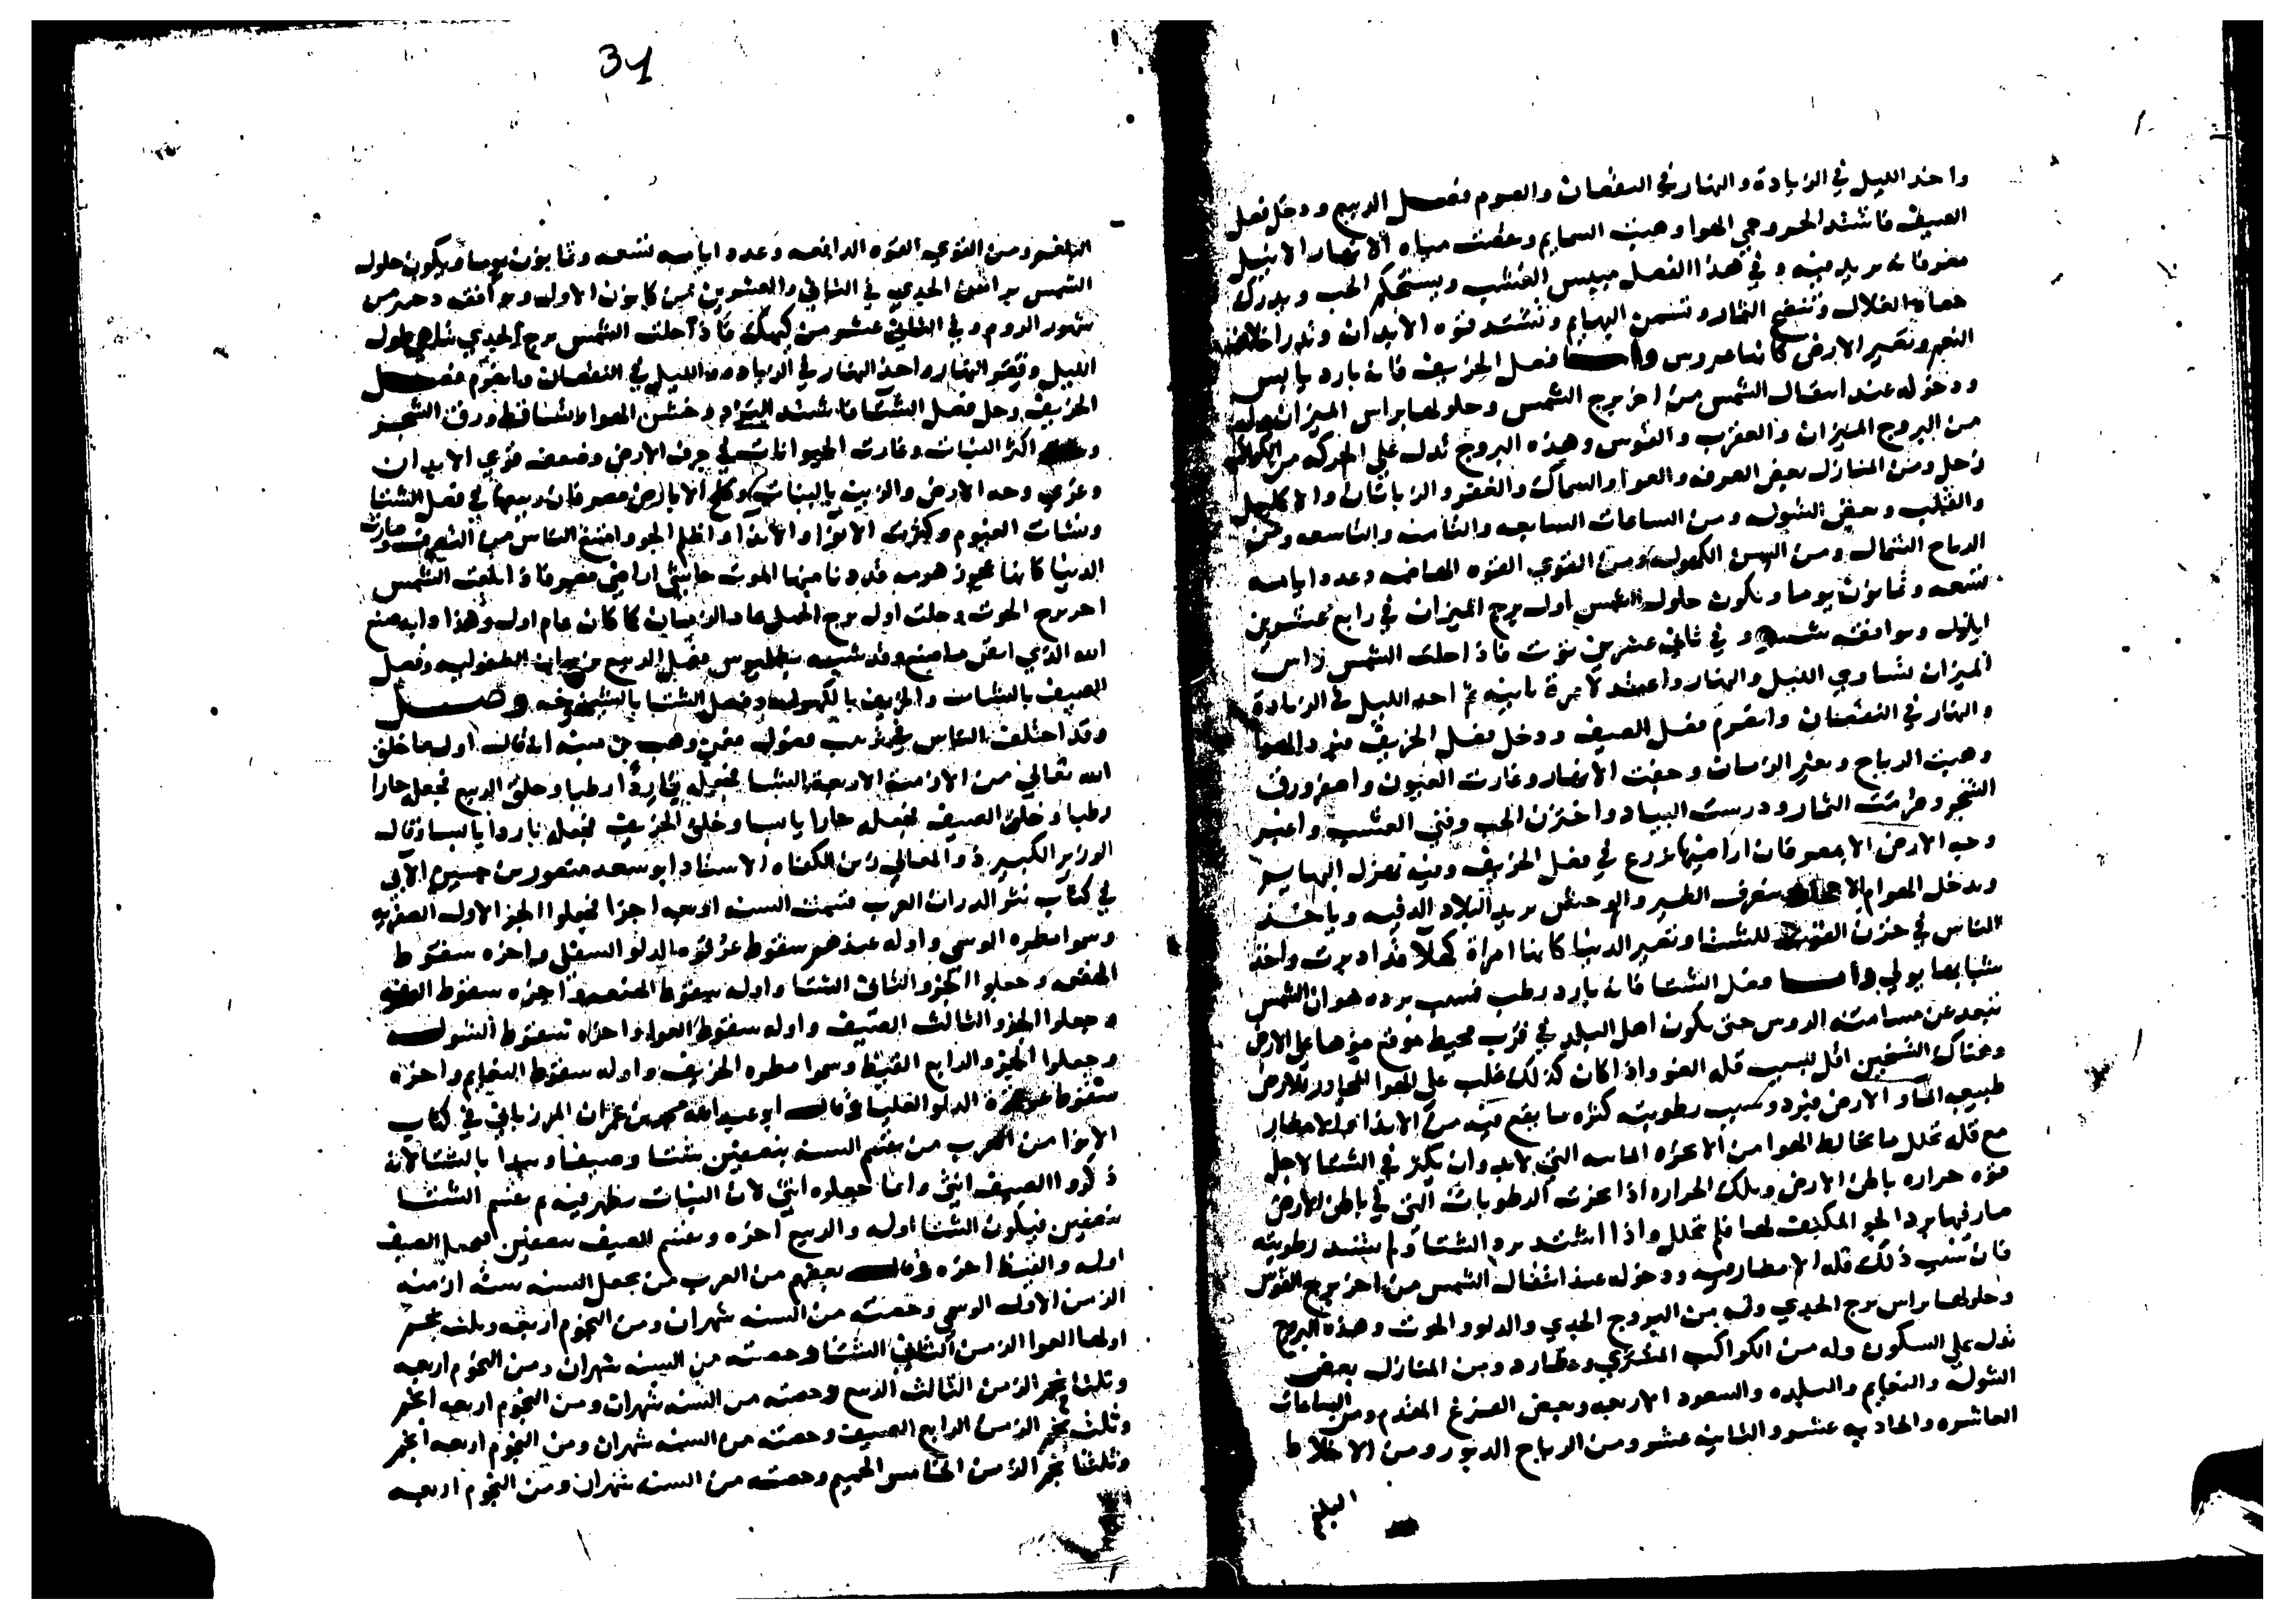 واخذ الليل في الزيادة والنهار في النقصان والصوم فصل الربيع ودخل فصل
الصيف فاشتد الحر وحمي الهوا وهبت السمايم ونقصت مياه الانهار الا نيل
مصر فانه يزيد فيه وفي هذا الفصل ييبس العشب ويستحكم الحب ويدرك
حصاد الغلال وتنضج الثمار وتسمن البهايم وتشتد قوه الابدان وتدر اخلاف
النعم وتصير الارض كانها عروس واما فصل الخريف فانه بارد يابس
ودخوله عند انتقال الشمس من اخر برج الشمس وحلولها براس الميزان وله
من البروج الميزان والعقرب والقوس وهذه البروج تدل علي الحركه من الكواكب
زحل ومن المنازل بعض الصرفه والعوا والسماك والغفر والزبانان والاكليل
والقلب وبعض الشوله ومن الساعات السابعه والثامنه والتاسعه ومن
الرياح الشمال ومن السن الكهوله ومن القوي القوه الهاضمه وعدد ايامه
تسعه وثمانون يوما ويكون حلول الشمس اول برج الميزان في رابع عشرين
ايلول ويوافقه وفي ثاني عشرين توت فاذا حلت الشمس راس
الميزان تساوي الليل والنهار واعتدلا مرة ثانيه ثم اخذ الليل في الزيادة
والنهار في النقصان وانصرم فصل الصيف ودخل فصل الخريف فبرد الهوا
وهبت الرياح وتغير الزمان وجفت الانهار وغارت العيون واصفر ورق
الشجر وصرمت الثمار ودرست البيادر واختزن الحب وفني العشب واغبر
وجه الارض الا بمصر فان اراضيها تزرع في فصل الخريف وفيه تهزل البهايم
ويدخل الهوام الاحجار وينصرف الطير والوحش يريد البلاد الدفيه وياخذ
الناس في خزن القوت للشتا وتصير الدنيا كانها امراة كهلة قد ادبرت واخذ
شبابها يولي واما فصل الشتا فانه بارد رطب فسبب برده هو ان الشمس
تبعد عن مسامته الروس حتى يكون اهل البلد في قرب محيط موقع ضوها علي الارض
وهناك التسخين اقل لسبب قله الضو واذا كان كذلك غلب علي الهوا المجاور للارض
طبيعه الما والارض فيبرد وسبب رطوبته كثره ما يقع فيه من الاندا والامطار
مع قله تحلل ما يخالط الهوا من الابخره المائيه التي لابد وان يكثر في الشتا لاجل
قوه حراره باطن الارض وتلك الحراره اذا بخرت الرطوبات التي في باطن الارض
صار فيها برد الجو المكثف لها فلم تتحلل واذا اشتد برد الشتا ولم يشتد رطوبته
فان سبب ذلك قله الامطار فيه ودخوله عند انتقال الشمس من اخر برج القوس
وحلولها براس برج الجدي وله من البروج الجدي والدلو والحوت وهذه البروج
تدل علي السكون وله من الكواكب المشتري وعطارد ومن المنازل بعض
الشوله والنعايم والبلده والسعود الاربعه وبعض الفرغ المقدم ومن الساعات
العاشره والحاديه عشر والثانيه عشر ومن الرياح الدبور ومن الاخلاط
البلغم
31
البلغم ومن القوي القوه الدافعه وعدد ايامه تسعه وثمانون يوما ويكون حلول
الشمس براس الجدي في الثاني والعشرين من كانون الاول ويوافقه دجنبر من
شهور الروم وفي الثاني عشر من كيهك فاذا حلت الشمس برج الجدي تناهي طول
الليل وقصر النهار واخذ النهار في الزيادة والليل في النقصان وانصرم فصل
الخريف وحل فصل الشتا فاشتد البرد وخشن الهوا وتساقط ورق الشجر
ومات اكثر النبات وغارت الحيوانات في جوف الارض وضعف قوي الابدان
وعري وجه الارض والزينه بالنبات وكلح الا بارض مصر فان ربيعها في فصل الشتا
ونشات الغيوم وكثرت الانوا والاندا واظلم الجو وامتنع الناس من التصرف وصارت
الدنيا كانها عجوز هرمه قد دنا منها الموت حاشي اراضي مصر فاذا بلغت الشمس
اخر برج الحوت وحلت اول برج الحمل عاد الزمان كما كان عام اول وهذا دابه صنع
الله الذي اتقن ما صنع وقد شبه بطليموس فصل الربيع بزمان الطفوليه وفصل
الصيف بالشباب والخريف بالكهوله وفصل الشتا بالشيخوخه وفصل
وقد اختلف الناس في ترتيب فصول فعن وهب بن منبه انه قال اول ما خلق
الله تعالي من الازمنه الاربعة الشتا فجعله باردا رطبا وخلق الربيع فجعله حارا
رطبا وخلق الصيف فجعله حارا يابسا وخلق الخريف فجعله باردا يابسا وقال
الوزير الكبير ذو المعالي زين الكفاه الاستاد ابو سعد منصور بن حسين الابي
في كتاب نثر الدر ان العرب قسمت السنه اربعه اجزا فجعلوا الجز الاول الصفريه
وسموا مطره الوسمي واوله عندهم سقوط عرقوه الدلو السفلي واخره سقوط
الهقعه وجعلوا الجز الثاني الشتا واوله سقوط الهنعه واخره سقوط الصرفه
وجعلوا الجز الثالث الصيف واوله سقوط العوا واخره سقوط الشوله
وجعلوا الجز الرابع القيظ وسموا مطره الخريف واوله سقوط النعايم واخره
سقوط عرقوه الدلو العليا وقال ابو عبد الله محمد بن عمران المرزباني في كتاب
الانوا من العرب من يقسم السنه بنصفين شتا وصيفا ويبدا بالشتا لانه
ذكر والصيف انثي وانما جعلوه انثي لان النبات يظهر فيه ثم يقسم الشتا
بنصفين فيكون الشتا اوله والربيع اخره ويقسم الصيف بنصفين فيجعل الصيف
اوله والقيظ اخره وقال بعضهم من العرب من يجعل السنه ست ازمنه
الزمن الاول الوسمي وحصته من السنه شهران ومن النجوم اربعه وثلثا نجم
اولها العوا الزمن الثاني الشتا وحصته من السنه شهران ومن النجوم اربعه
وثلثا نجم الزمن الثالث الربيع وحصته من السنه شهران ومن النجوم اربعه انجم
وثلثا نجم الزمن الرابع الصيف وحصته من السنه شهران ومن النجوم اربعه انجم
وثلثا نجم الزمن الخامس الحميم وحصته من السنه شهران ومن النجوم اربعه